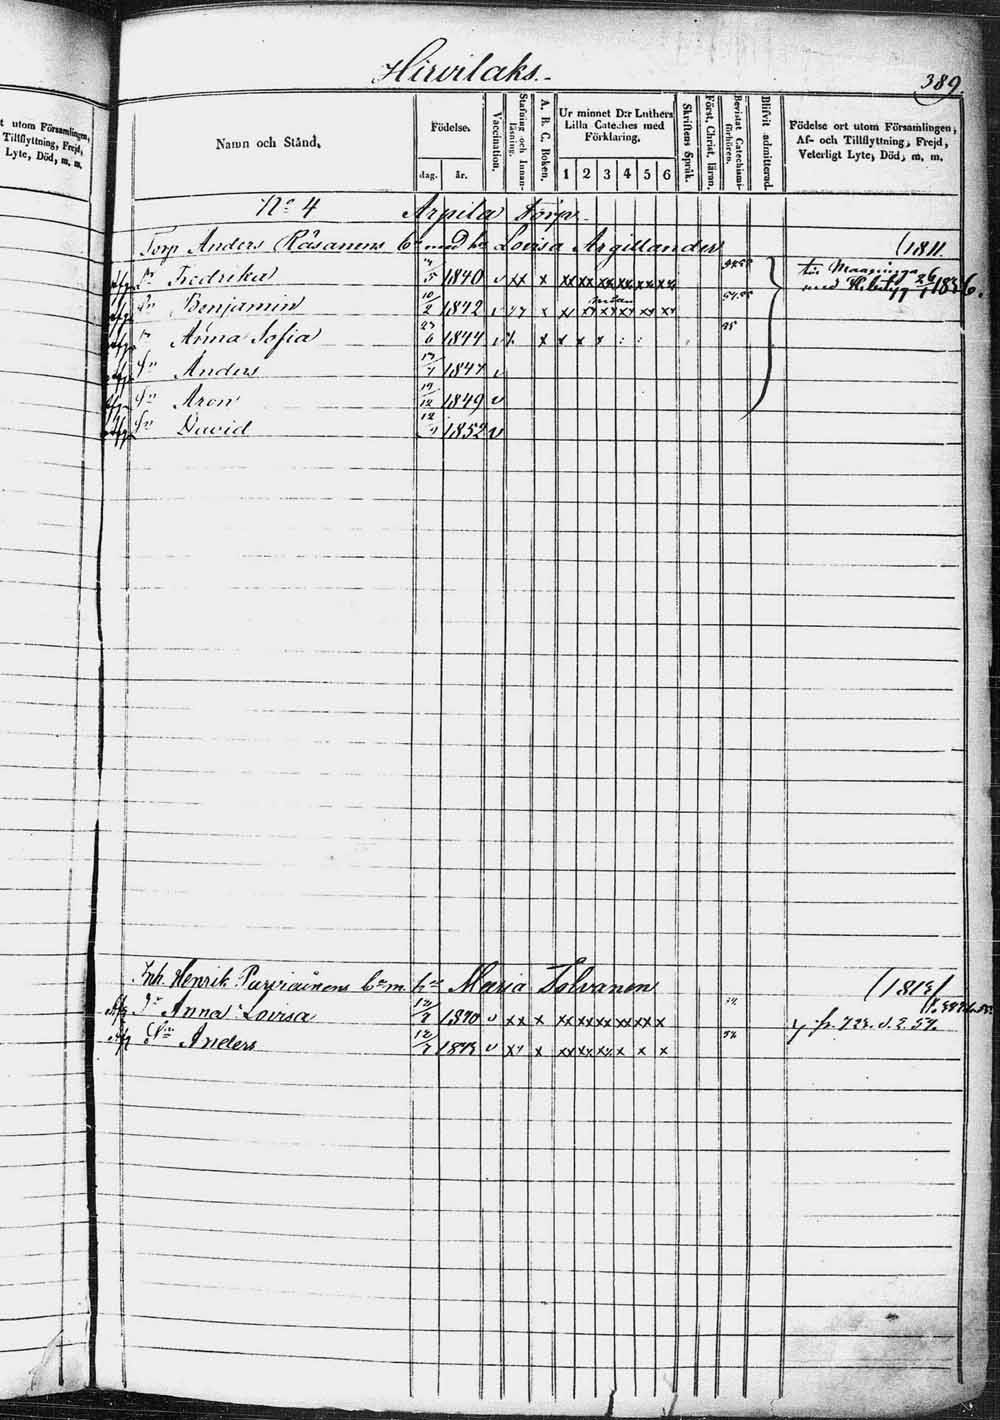 Hirvilaks.
389.
t utom Församlingen,
Tillflyttning, Frejd,
Lyte, Död, m. m.
Namn och Stånd.
Födelse.
dag. år.
Vaccination.
Stafning och Innanläsning.
A. B. C. Boken.
Ur minnet D:r Luthers
Lilla Cateches med
Förklaring.
1 2 3 4 5 6
Skriftens Språk.
Först. Christ. läran.
Bevistat Catechismiförhören.
Blifvit admitterad.
Födelse ort utom Församlingen,
Af- och Tillflyttning, Frejd,
Veterligt Lyte, Död, m. m.
No 4 Arpila Torp
Torp Anders Räsänens bn med hu Lovisa Argillander (1811.
Dr Fredrika 5 1840 v xx x xx xx xx xx xx xx till Maaninga
Sn Benjamin 10/2 1842 v x x
Dr Anna Sofia 23/6 1844 v x x x x
Sn Anders 1847 v
Sn Aron 19/12 1849 v
Sn David 12 1852 v
Inh. Henrik Purviainens bn m. hu Maria Tolvanen (1813/
Dr Anna Lovisa 12/2 1840 v xx x xx xx xx xx xx x
Sn Anders 12 1843 v xx x xx xx xx x x x 54